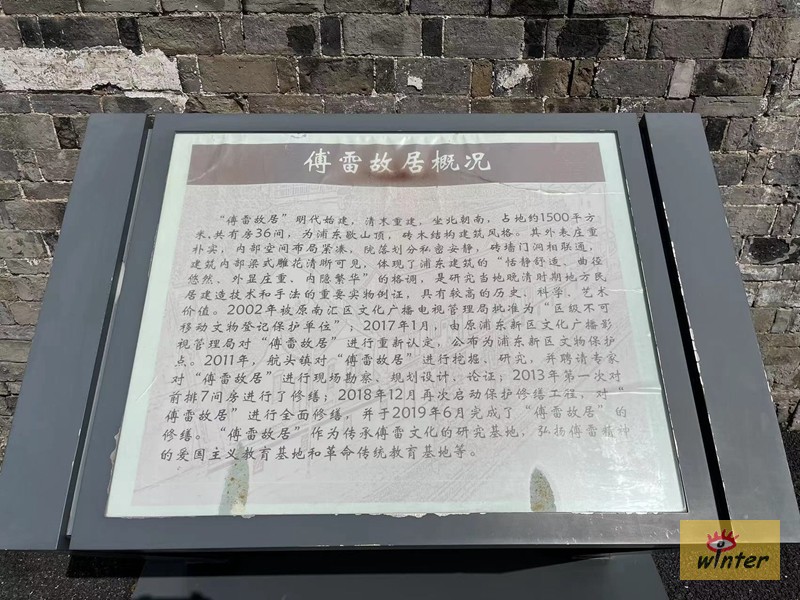 傅雷故居概况
“傅雷故居”明代始建，清末重建，坐北朝南，占地约1500平方
米，共有房36间，为浦东歇山顶，砖木结构建筑风格。其外表庄重
朴实，内部空间布局紧凑，院落划分私密安静，砖墙门洞相联通，
建筑内部梁式雕花清晰可见，体现了浦东建筑的“恬静舒适、曲径
悠然、外显庄重、内隐繁华”的格调，是研究当地晚清时期地方民
居建造技术和手法的重要实物例证，具有较高的历史、科学、艺术
价值。2002年被原南汇区文化广播电视管理局批准为“区级不可
移动文物登记保护单位”，2017年1月，由原浦东新区文化广播影
视管理局对“傅雷故居”进行重新认定，公布为浦东新区文物保护
点。2011年，航头镇对“傅雷故居”进行挖掘、研究，并聘请专家
对“傅雷故居”进行现场勘察、规划设计，论证；2013年第一次对
前排7间房进行了修缮；2018年12月再次启动保护修缮工程，对“
傅雷故居”进行全面修缮，并于2019年6月完成了“傅雷故居”的
修缮。“傅雷故居”作为传承傅雷文化的研究基地，弘扬傅雷精神
的爱国主义教育基地和革命传统教育基地等。
winter